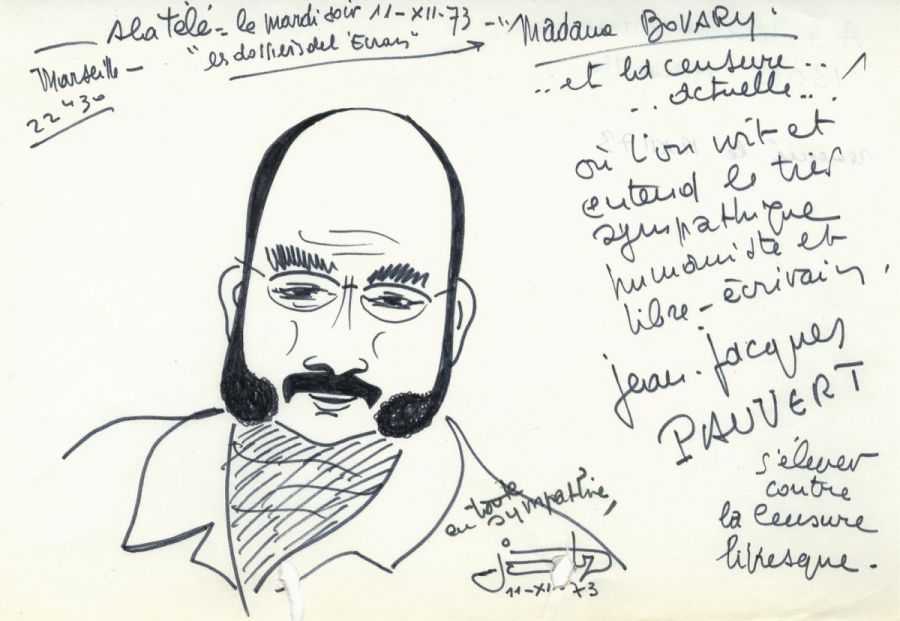 A la télé - le mardi soir 11-XII-73 - "Madame BOVARY"
"les dossiers de l'Ecran"
Marseille -
22H30
..et la censure..
..actuelle...
où l'on voit et
entend le très
sympathique
humaniste et
libre-écrivain,
jean-jacques
PAUVERT
s'élever
contre
la censure
livresque.
en toute
sympathie,
11-XII-73